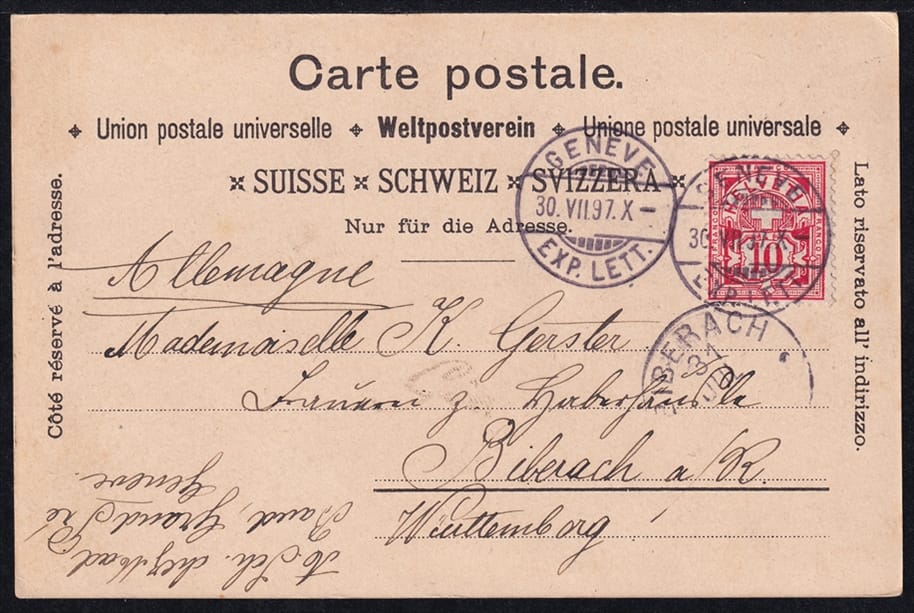 Carte postale.
Union postale universelle Weltpostverein Unione postale universale
SUISSE SCHWEIZ SVIZZERA
Nur für die Adresse.
Côté réservé à l'adresse.
Lato riservato all' indirizzo.
GENEVE
30.VII.97.X–
EXP. LETT.
HELVETIA
FRANCO
10
30.VII.97.X–
BIBERACH
31
Allemagne
Mademoiselle K. Gerster
z.
Biberach a/R.
Württemberg
Sch. chez Mad
Baud, Grand Pré
Genève.